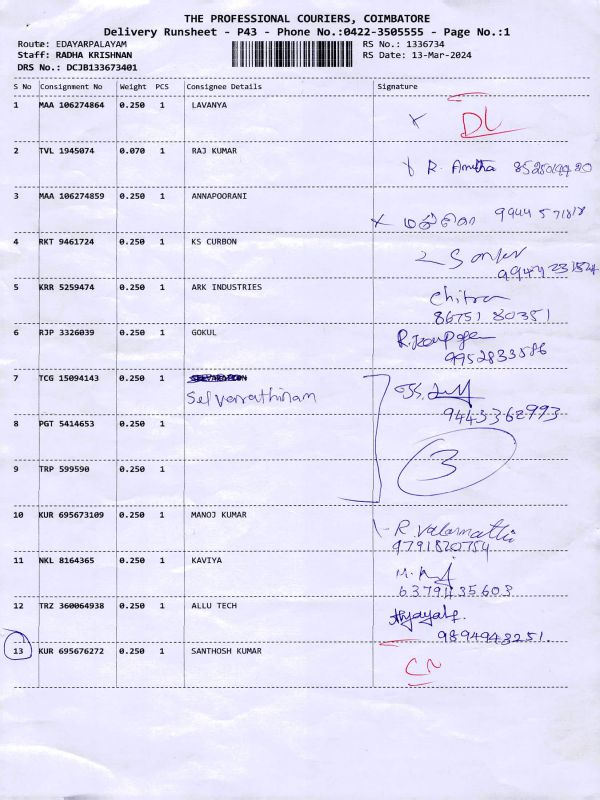 THE PROFESSIONAL COURIERS, COIMBATORE
Delivery Runsheet - P43 - Phone No.:0422-3505555 - Page No.:1
Route: EDAYARPALAYAM RS No.: 1336734
Staff: RADHA KRISHNAN RS Date: 13-Mar-2024
DRS No.: DCJB133673401
S No Consignment No Weight PCS Consignee Details Signature
1 MAA 106274864 0.250 1 LAVANYA
DL
2 TVL 1945074 0.070 1 RAJ KUMAR
R. Amutha
3 MAA 106274859 0.250 1 ANNAPOORANI
99445 71818
4 RKT 9461724 0.250 1 KS CURBON
9944231524
5 KRR 5259474 0.250 1 ARK INDUSTRIES
Chitra
86751 80351
6 RJP 3326039 0.250 1 GOKUL
9952833586
7 TCG 15094143 0.250 1
Selvarathinam
9443362993
8 PGT 5414653 0.250 1
3
9 TRP 599590 0.250 1
10 KUR 695673109 0.250 1 MANOJ KUMAR
R. Valarmathi
9791820754
11 NKL 8164365 0.250 1 KAVIYA
6379435603
12 TRZ 360064938 0.250 1 ALLU TECH
9894943251.
13 KUR 695676272 0.250 1 SANTHOSH KUMAR
CN